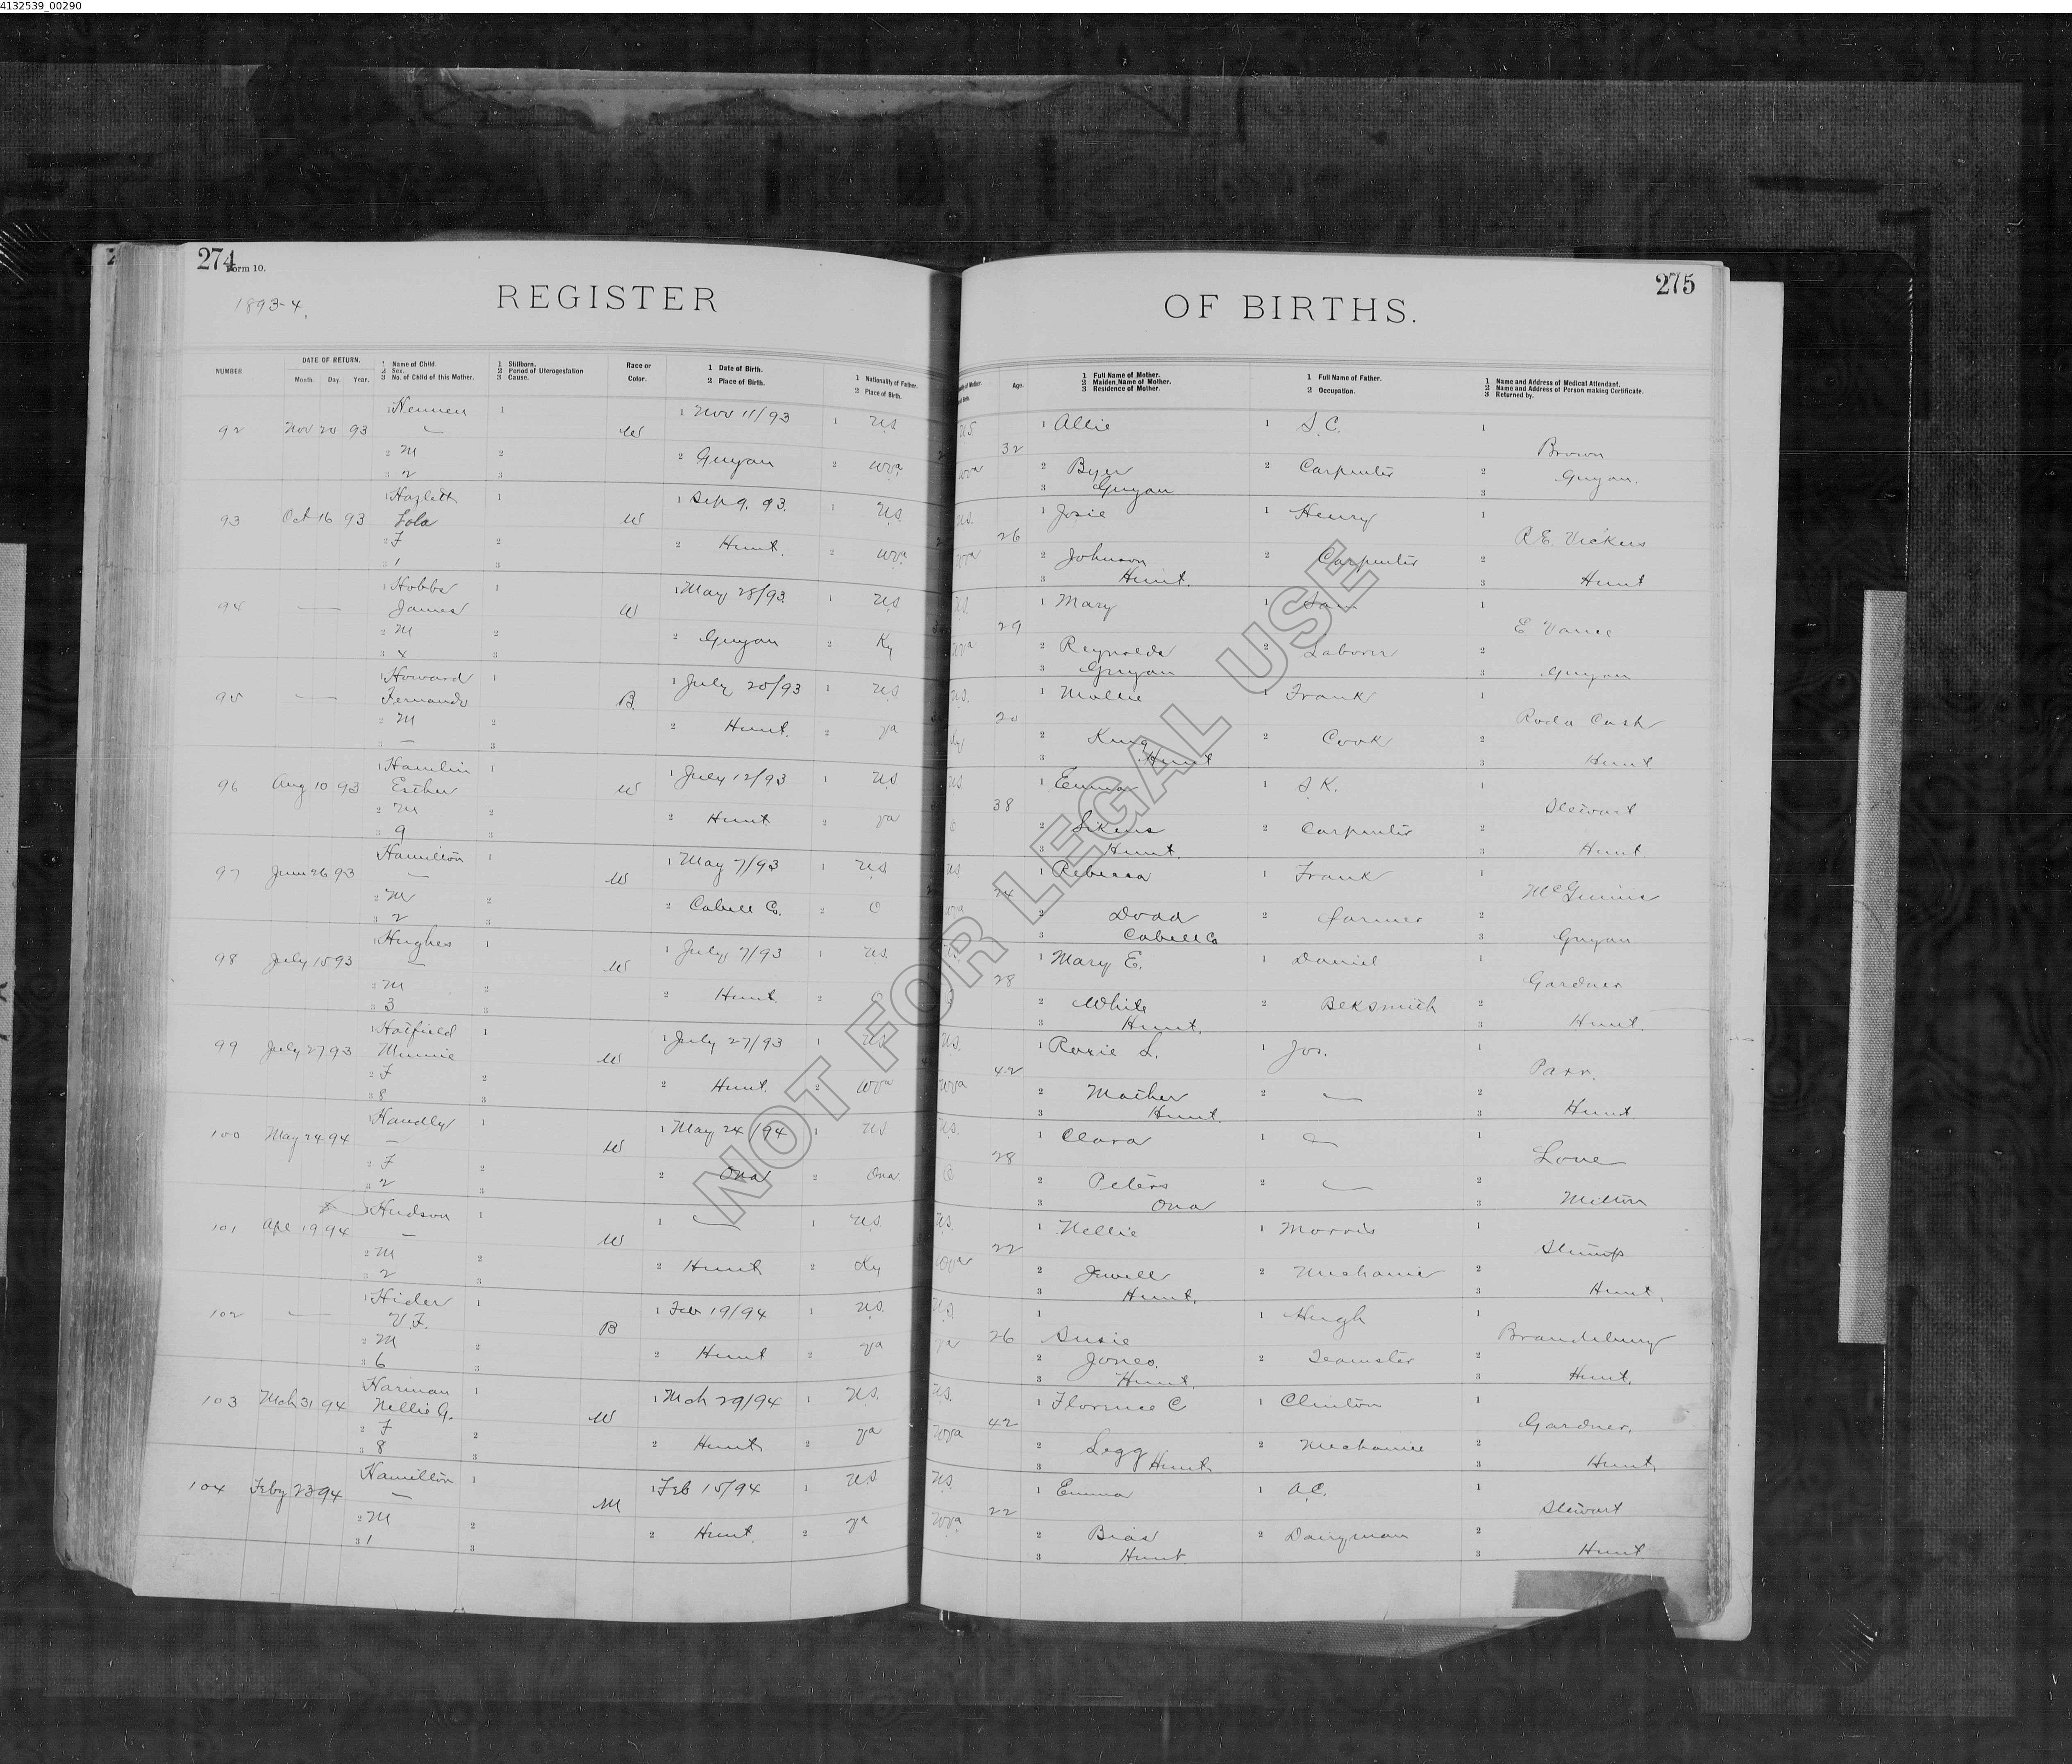 4132539_00290
274
Form 10.
1893-4.
REGISTER
NUMBER
DATE OF RETURN.
Month. Day. Year.
1 Name of Child.
2 Sex.
3 No. of Child of this Mother.
1 Stillborn.
2 Period of Uterogestation
3 Cause.
Race or
Color.
1 Date of Birth.
2 Place of Birth.
1 Nationality of Father.
2 Place of Birth.
275
OF BIRTHS.
Age.
1 Full Name of Mother.
2 Maiden Name of Mother.
3 Residence of Mother.
1 Full Name of Father.
2 Occupation.
1 Name and Address of Medical Attendant.
2 Name and Address of Person making Certificate.
3 Returned by.
92 Nov 20 93 1 Hennen 1 W 1 Nov 11/93 1 U.S U.S 32 1 Allie 1 S.C. 1 Brown
2 M 2 2 Guyan 2 Wva Wva 2 Byer 2 Carpenter 2 Guyan.
3 2 3 3 Guyan 3
93 Oct 16 93 1 Hazlett 1 W 1 Sep 9. 93. 1 U.S. U.S. 26 1 Josie 1 Henry 1 R.E. Vickers
Lola
2 F 2 2 Hunt. 2 Wva Wva 2 Johnson 2 Carpenter 2
3 1 3 3 Hunt. 3 Hunt
94 — 1 Hobbs 1 W 1 May 28/93. 1 U.S U.S. 29 1 Mary 1 1 E Vance
James
2 M 2 2 Guyan 2 Ky Wva 2 Reynolds 2 Laborer 2
3 4 3 3 Guyan 3 Guyan
95 — 1 Howard 1 B. 1 July 20/93 1 U.S U.S. 20 1 Mollie 1 Frank 1 Roda Cash
Fernando
2 M 2 2 Hunt. 2 Va Ky 2 King 2 Cook 2
3 — 3 3 Hunt 3 Hunt
96 Aug 10 93 1 Hamlin 1 W 1 July 12/93 1 U.S. U.S 38 1 Emma 1 S.K. 1 Stewart
Esther
2 M 2 2 Hunt 2 Va O 2 Sikens 2 Carpenter 2
3 9 3 3 Hunt. 3 Hunt
97 June 26 93 1 Hamilton 1 W 1 May 7/93 1 U.S U.S 24 1 Rebecca 1 Frank 1 McGinnis
2 M 2 2 Cabell Co. 2 O Wva 2 Dodd 2 farmer 2
3 2 3 3 Cabell Co 3 Guyan
98 July 15 93 1 Hughes 1 W 1 July 7/93 1 U.S. 28 1 Mary E. 1 Daniel 1 Gardner
2 M 2 2 Hunt 2 O 2 White 2 BlkSmith 2
3 3 3 3 Hunt. 3 Hunt.
99 July 27 93 1 Hatfield 1 W 1 July 27/93 1 U.S U.S. 42 1 Rosie L. 1 Jos. 1 Parr.
Minnie
2 F 2 2 Hunt. 2 Wva Wva 2 Mather 2 — 2
3 8 3 3 Hunt. 3 Hunt
100 May 24 94 1 Handly 1 W 1 May 24/94 1 U.S U.S. 28 1 Clara 1 — 1 Love
2 F 2 2 Ona 2 Ona O 2 Peters 2 — 2
3 2 3 3 Ona 3 Milton
101 Apl 19 94 1 Hudson 1 W 1 — 1 U.S. U.S. 22 1 Nellie 1 Morris 1 Stump
2 M 2 2 Hunt 2 Ky Wva 2 Jewell 2 Mechanic 2
3 2 3 3 Hunt. 3 Hunt.
102 — 1 Hider 1 B 1 Feb 19/94 1 U.S. U.S 26 1 Susie 1 Hugh 1 Brandebury
V.F.
2 M 2 2 Hunt 2 Va Va 2 Jones. 2 Teamster 2
3 6 3 3 Hunt. 3 Hunt.
103 Mch 31 94 1 Harman 1 W 1 Mch 29/94 1 U.S. U.S. 42 1 Florence C 1 Clinton 1 Gardner.
Nellie G.
2 F 2 2 Hunt 2 Va Wva 2 Legg 2 Mechanic 2
3 8 3 3 Hunt 3 Hunt
104 Feby 23 94 1 Hamilton 1 M 1 Feb 15/94 1 U.S U.S. 22 1 Emma 1 A.C. 1 Stewart
2 M 2 2 Hunt. 2 Va Wva 2 Bias 2 Dairyman 2
3 1 3 3 Hunt 3 Hunt
NOT FOR LEGAL USE